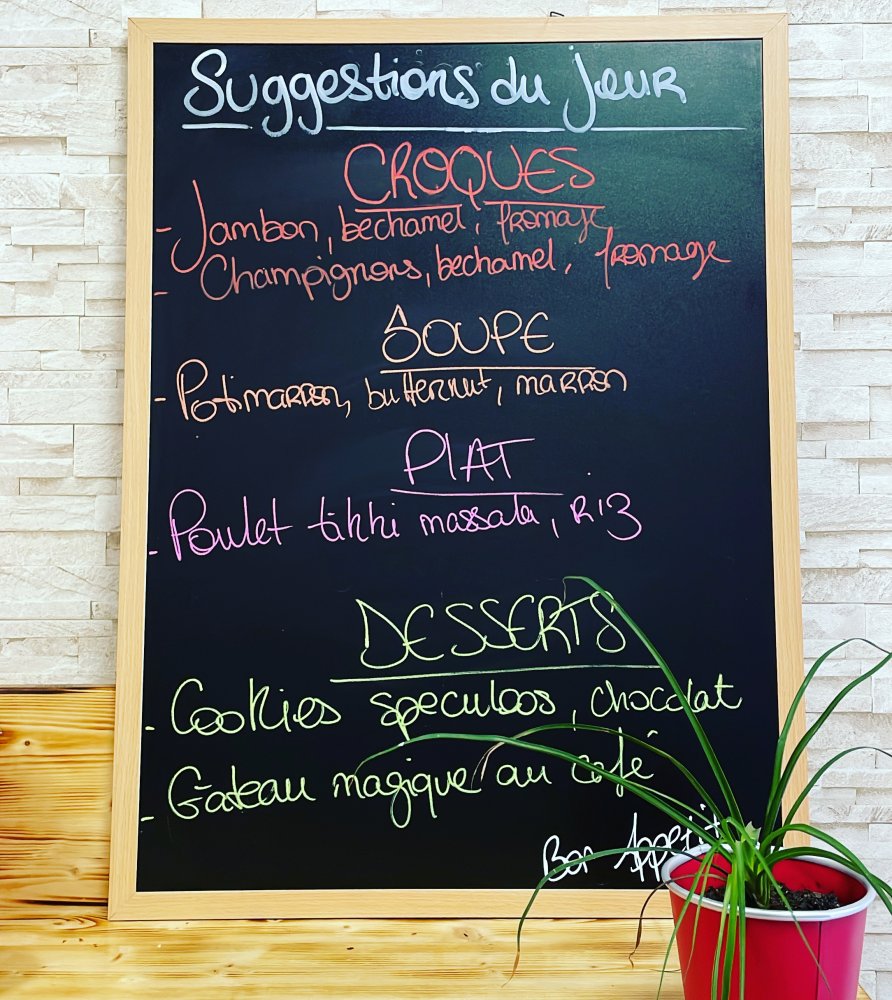 Suggestions du jour
CROQUES
- Jambon, bechamel, fromage
- Champignons, bechamel, fromage
SOUPE
- Potimarron, butternut, marron
PLAT
- Poulet tikki massala, Riz
DESSERTS
- Cookies speculoos, chocolat
- Gâteau magique au café
Bon Appétit